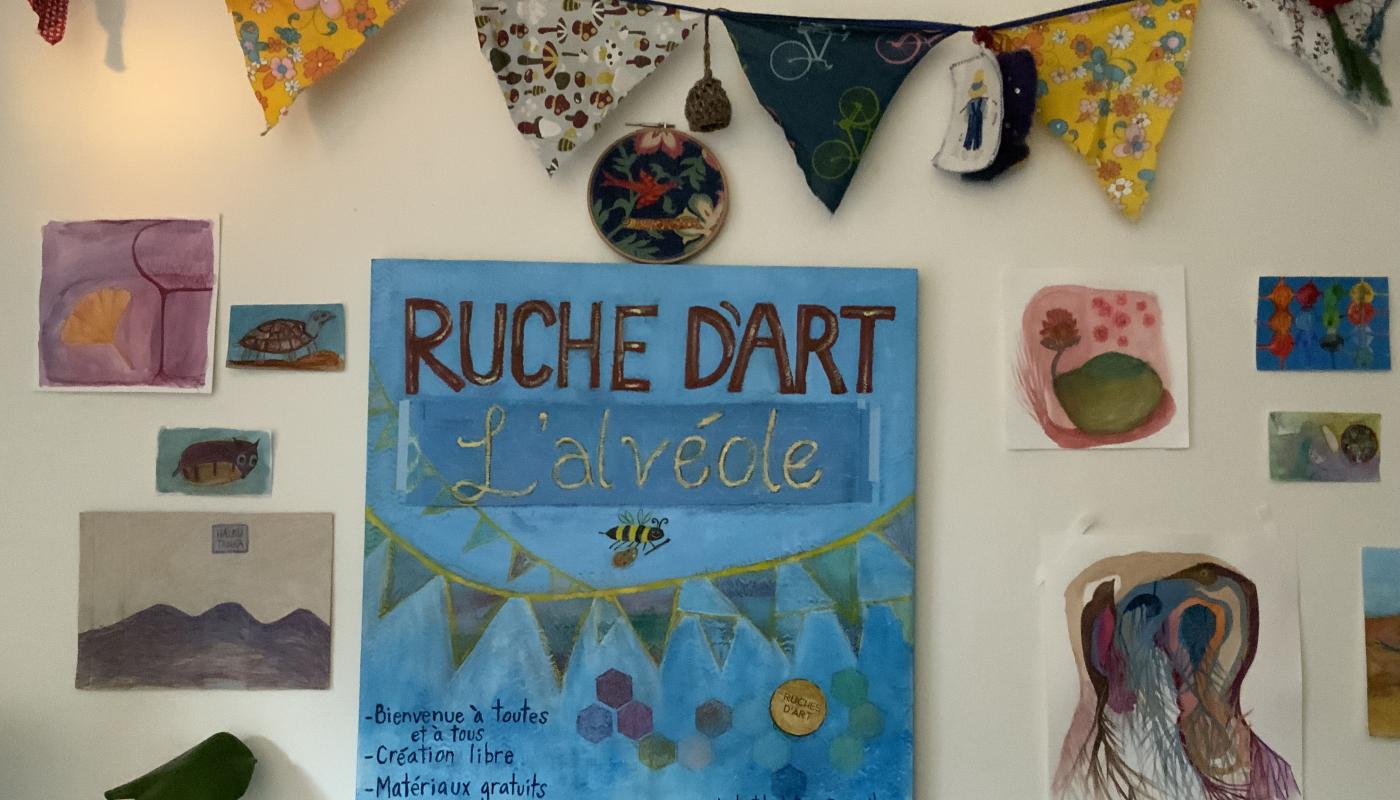 RUCHE D'ART
L'alvéole
HAIKU
RUCHES
D'ART
-Bienvenue à toutes
et à tous
-Création libre
-Matériaux gratuits